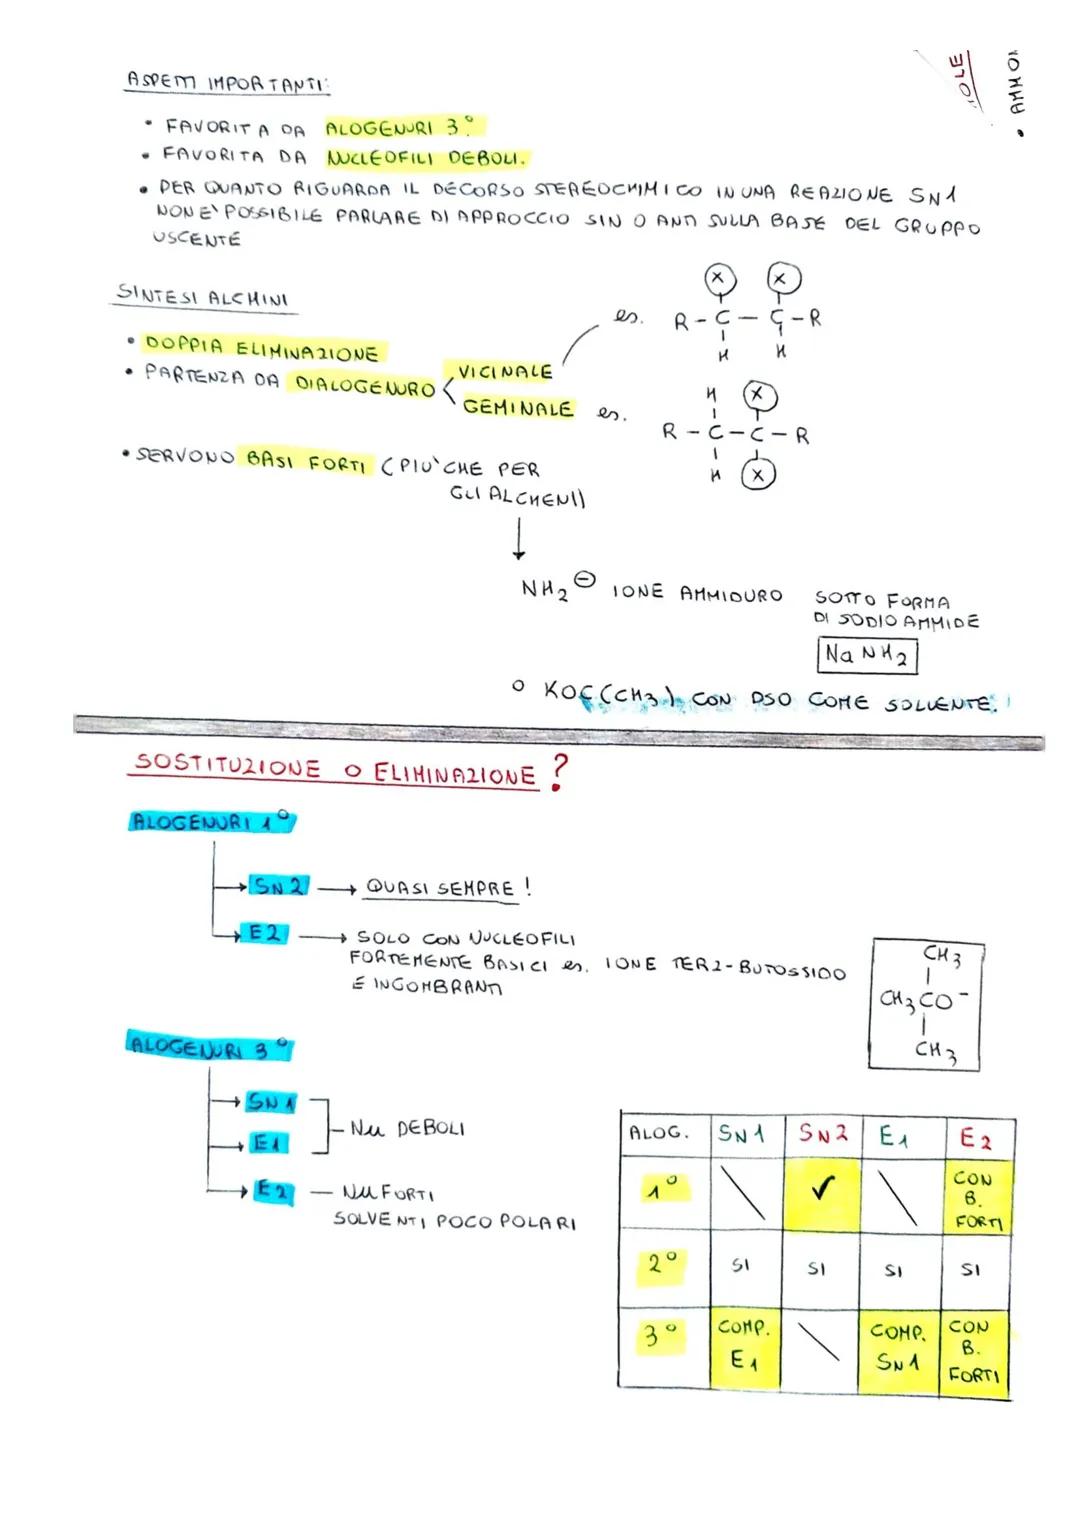 ASPETTI IMPORTANTI:
• FAVORITA DA ALOGENURI 3°
• FAVORITA DA NUCLEOFILI DEBOLI.
• PER QUANTO RIGUARDA IL DECORSO STEREOCHIMICO IN UNA REAZIONE SN1
NON E' POSSIBILE PARLARE DI APPROCCIO SIN O ANTI SULLA BASE DEL GRUPPO
USCENTE
SINTESI ALCHINI
• DOPPIA ELIMINAZIONE
• PARTENZA DA DIALOGENURO
VICINALE
GEMINALE
es.
X X
R-C-C-R
H H
es.
H X
R-C-C-R
H X
• SERVONO BASI FORTI (PIU' CHE PER
GLI ALCHENI)
NH2⊖ IONE AMMIDURO
SOTTO FORMA
DI SODIO AMMIDE
NaNH2
O KOC(CH3) CON DSO COME SOLVENTE.
SOSTITUZIONE O ELIMINAZIONE?
ALOGENURI 1°
SN2 → QUASI SEMPRE!
E2 → SOLO CON NUCLEOFILI
FORTEMENTE BASICI es. IONE TERZ-BUTOSSIDO
E INGOMBRANTI
CH3
CH3CO⁻
CH3
ALOGENURI 3°
SN1
E1
Nu DEBOLI
E2 – Nu FORTI
SOLVENTI POCO POLARI
ALOG. SN1 SN2 E1 E2
1° \ ✓ \ CON B. FORTI
2° SI SI SI SI
3° COMP. E1 \ COMP. SN1 CON B. FORTI
• AMMON